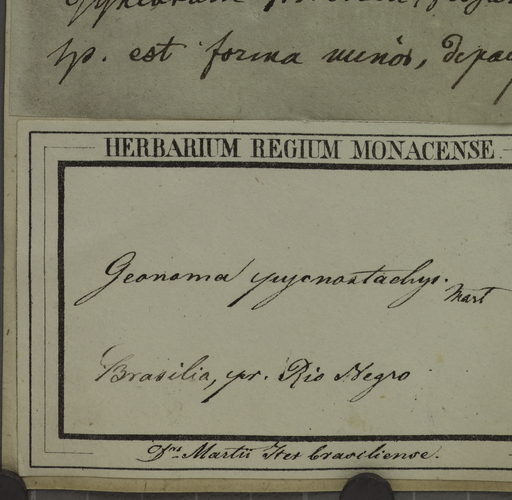 sp. est forma minor, depau
HERBARIUM REGIUM MONACENSE.
Geonoma pycnostachys.
Mart
Brasilia, pr. Rio Negro
Drs. Martii Iter brasiliense.